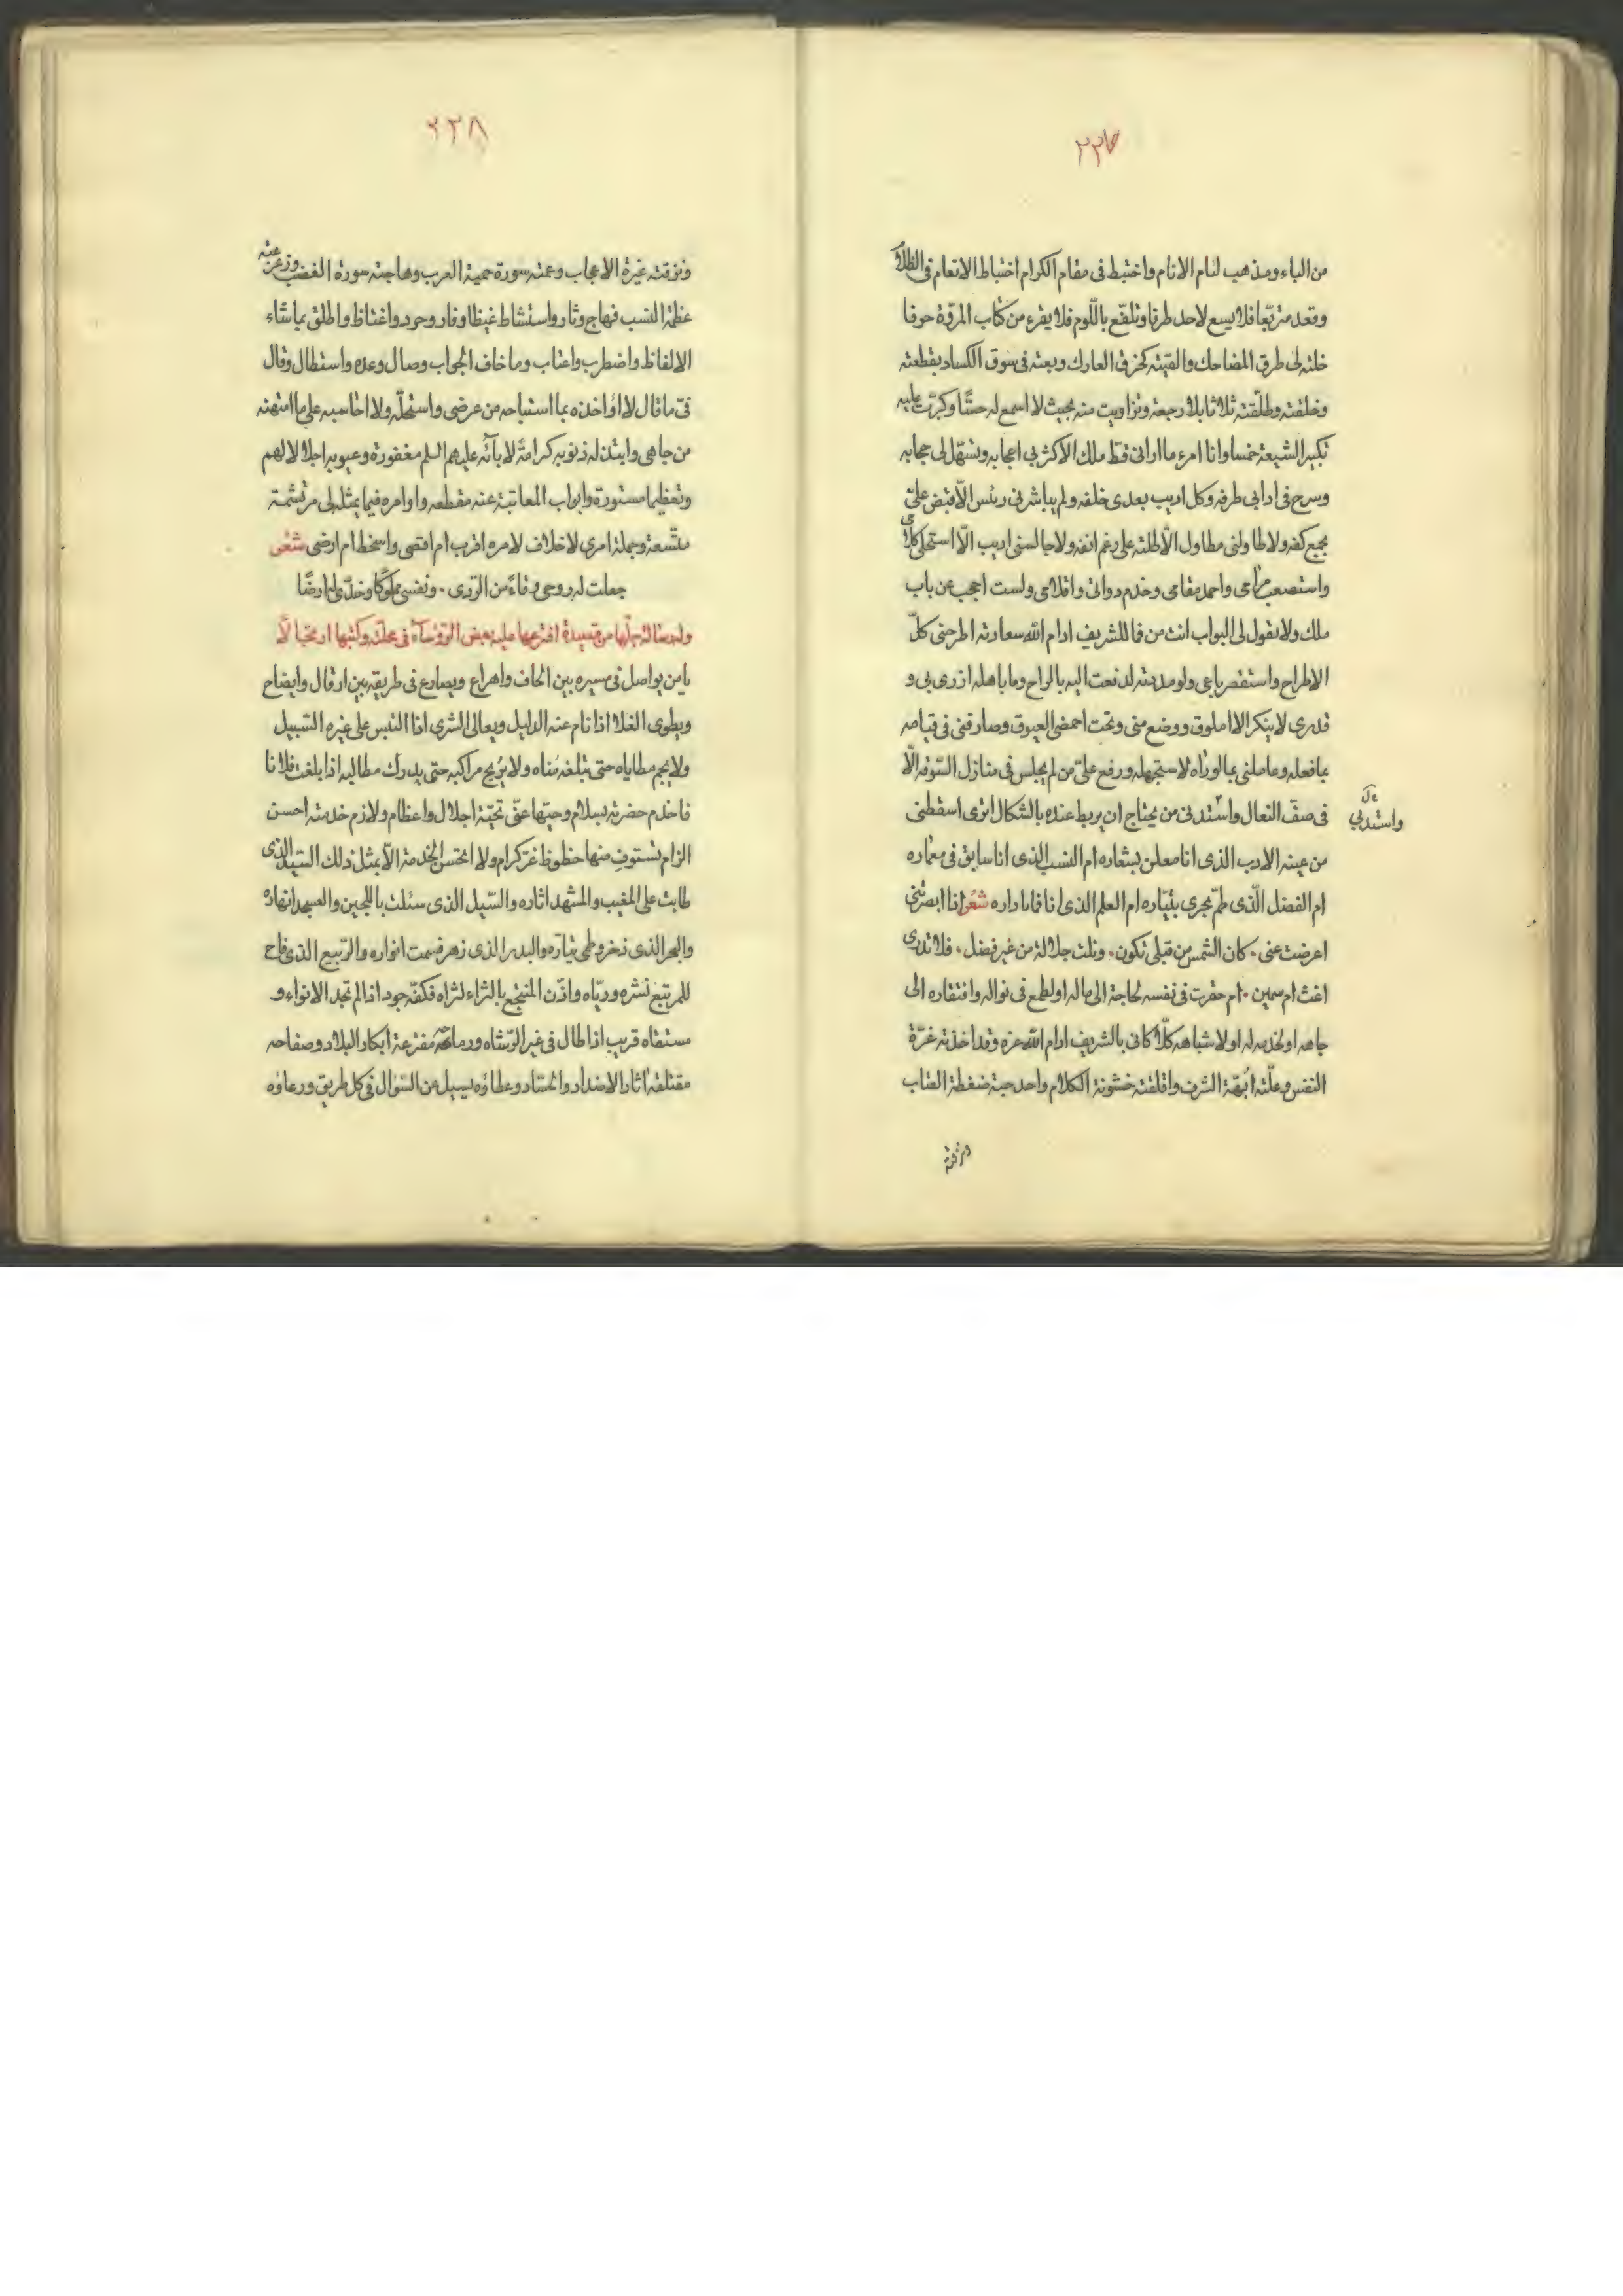 ٢٢٧
من الباء ومذهب لئام الانام واختبط فى مقام الكرام اختباط الانعام فى الظلام
وقعد متربّعا فلا يسع لاحد طرفا وتلفّع باللّوم فلا يقرء من كتاب المروّة حرفا
خلته لى طرق المضاحك والقيته كخرق العارك وبعته فى سوق الكساد بقطعته
وخلفته وطلّقته ثلاثا بلا رجعة وتزاويت منه بحيث لا اسمع له حسّا وكبرّت عليه
تكبير الشيعة خمسا وانا امرء ما ارانى قط ملك الا كثر بى اعجابه وتسهّل لى حجابه
وسرح فى ادابى طرفه وكل اريب بعدى خلفه ولم يباشرنى رئيس الّا قبض علىّ
بجمع كفه ولا طاولنى مطاول الّا طلته على رغم انفه ولا جالسنى اريب الّا استحلى كلامى
واستصعب مرامى واحمد مقامى وخدم دواتى واقلامى ولست احجب عن باب
ملك ولا يقول لى البواب انت من فما للشريف ادام الله سعادته اطرحنى كلّ
الاطراح واستقصر باعى ولو مددته لدفعت اليه بالراح وما باهله ازرى بى و
قدرى لا ينكر الا املوق ووضع منى وتحت احمضى العيوق وصارفنى فى قيامه
بما فعله وعاملنى بما لو رأه لاستجهله ورفع علىّ من لم يجلس فى منازل السّوقه الّا
فى صفّ النعال واستدنى من يحتاج ان يربط عنده بالشكال اترى اسقطنى
واستدنى
من عينه الادب الذى انا معلن بشعاره ام النسب الذى انا سابق فى مضماره
ام الفضل الّذى طمّ بحرى بتيّاره ام العلم الذى انا فى داره شعر اذا ابصرتنى
اعرضت عنى ٠ كان الشمس من قبلى تكون ٠ ونلت جلالة من غير فضل ٠ فلا تدرى
اغث ام سمين ٠ ام حقرت فى نفسه لحاجة الى ماله او لطمع فى نواله وافتقاره الى
جاهه او لخدمه له او لاشباهه كلّا كانى بالشريف ادام الله عزه وقد اخذته غرّة
النفس وعلّته ابّهة الشرف واقلقته خشونة الكلام واحرجته ضغطة العتاب
ونزقته
٢٢٨
ونزقته غيرة الاعجاب وعمته سورة حمية العرب وهاجته سورة الغضب وزعزعته
عظمة النسب فهاج وثار واستشاط غيظا وفار وحرد واغتاظ واطلق بما شاء
الالفاظ واضطرب واعتاب وما خاف الجواب وصال وعده واستطال وقال
فىّ ما قال لا اؤاخذه بما استباحه من عرضى واستحلّه ولا احاسبه على ما امتهنه
من جاهى وابتذله ذنوبه كرامةً لابآئه عليهم السلم مغفورة وعيوبه اجلالا لهم
وتعظيما مستورة وابواب المعاتبة عنه مقطعه واوامره فيما يمثله لى مرتسمة
متّسعة وجملة امرى لا خلاف لامره اقرب ام اقصى واسخط ام ارضى شعر
جعلت له روحى وقاءً من الرّدى ٠ ونفسى مملوكا وخدّى له ارضًا
وله رسالة جلّها من قصيدة اقترحها عليه بعض الرّؤسآء فى محلّته وكتبها ارتجالًا
يا من يواصل فى سيره بين الحاف واهراع ويصارع فى طريقه بين ارقال وايضاح
ويطوى الفلا اذا نام عنه الدليل ويعالى السّرى اذا التبس على غيره السّبيل
ولا يجم مطاياه حتى تبلغه مُناه ولا يُريح مراكبه حتى يدرك مطالبه اذا بلغت فلانا
فاخدم حضرته بسلام وحيّها عنّى تحيّة اجلال واعظام ولازم خدمته احسن
الزام تستوف منها حظوظ غرّ كرام ولا احسن الخدمة الّا بمثل ذلك السّيد الّذى
طابت على المغيب والمشهد اثاره والسّيل الذى سئلت باللجين والعسجد انهاره
والبحر الذى زخر وطمى تيّاره والبدر الذى زهر فسمت انواره والرّبيع الذى فاح
للمرتبع نشره وريّاه واذن المنتجع بالثراء لثراه فكفّه جود اذا لم تجد الانواء و
مستقاه قريب اذا طال فى غير الرّشاه ورماحه مفترعة ابكار البلاد وصفاحه
مقتلفة اثار الاضداد والحسّاد وعطاؤه يسيل عن السّؤال فى كل طريق ورعاؤه